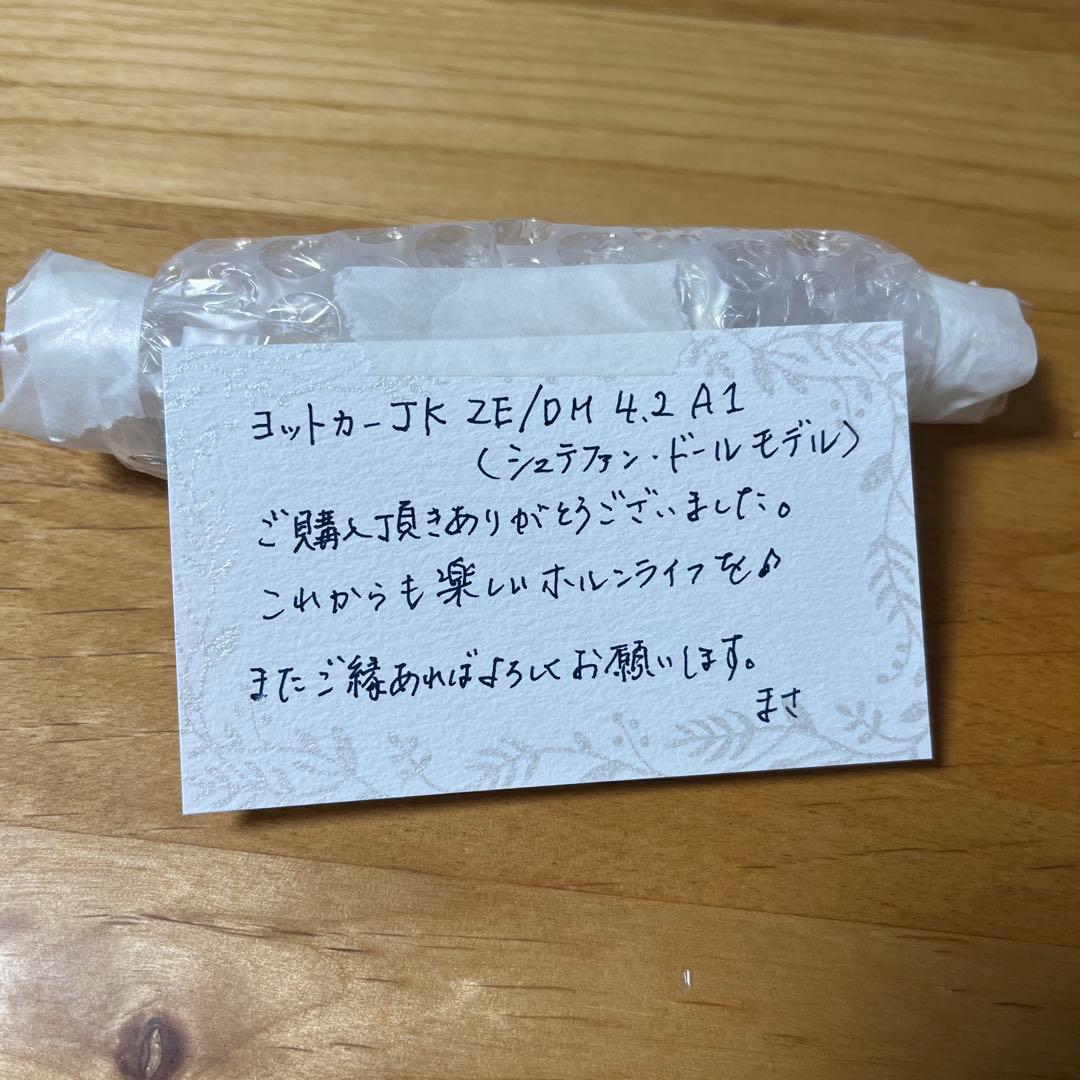 ヨットカーJK 2E/DH 4.2 A1
(シュテファン・ドールモデル)
ご購入頂きありがとうございました。
これからも楽しいホルンライフを♪
またご縁あればよろしくお願いします。
まさ